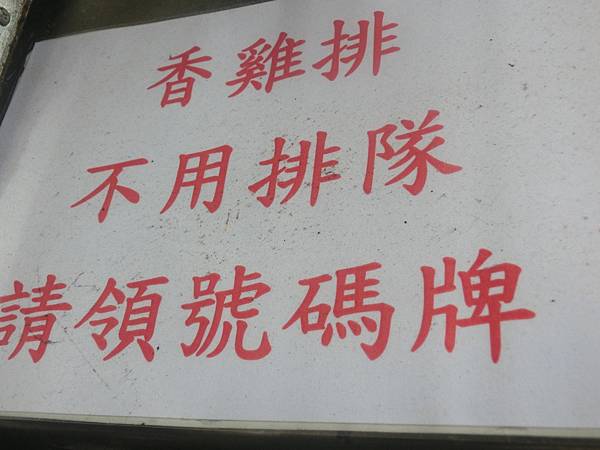 香雞排
不用排隊
請領號碼牌